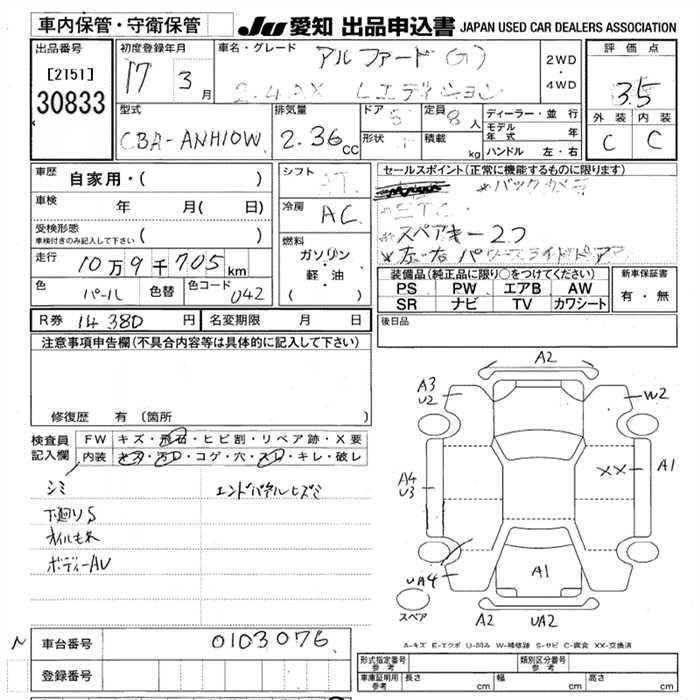 車内保管・守衛保管
JU 愛知 出品申込書 JAPAN USED CAR DEALERS ASSOCIATION
出品番号
[2151]
30833
初度登録年月
17 3月
車名・グレード
アルファード(G)
2.4AX Lエディション
2WD
・
4WD
評価点
3.5
外装 内装
C C
型式
CBA-ANH10W
排気量
2.36cc
ドア
5
形状
定員
8人
積載
kg
ディーラー・並行
モデル年式 年
ハンドル 左・右
車歴 自家用・( )
車検 年 月( 日)
受検形態
車検付きのみ記入して下さい ( )
走行 10万9千705km
色 パール 色替 色コード 042
シフト
AT
冷房
AC
燃料
ガソリン
・
軽・油
( )
セールスポイント(正常に機能するものに限ります)
*バックカメラ
ETC
*スペアキー2つ
*左右パワースライドドア
装備品(純正品に限り○をつけてください)
PS PW エアB AW
SR ナビ TV カワシート
新車保証書
有・無
R券 14380円 名変期限 月 日
後日品
注意事項申告欄(不具合内容等は具体的に記入して下さい)
修復歴 有(箇所 )
検査員記入欄
FW キズ・飛石・ヒビ割・リペア跡・X要
内装 キズ・汚レ・コゲ・穴・スレ・キレ・破レ
シミ
エンドパネルヒズミ
下廻りS
オイルモレ
ボディーAU
A2
A3
U2
W2
A4
U3
XX
A1
UA4
A1
スペア
A2
UA2
A-キズ E-エクボ U-凹み W-補修跡 S-サビ C-腐食 XX-交換済
N
車台番号 0103076
登録番号
形式指定番号
参考
類別区分番号
参考
車庫証明用
参考
長さ cm 幅 cm 高さ cm